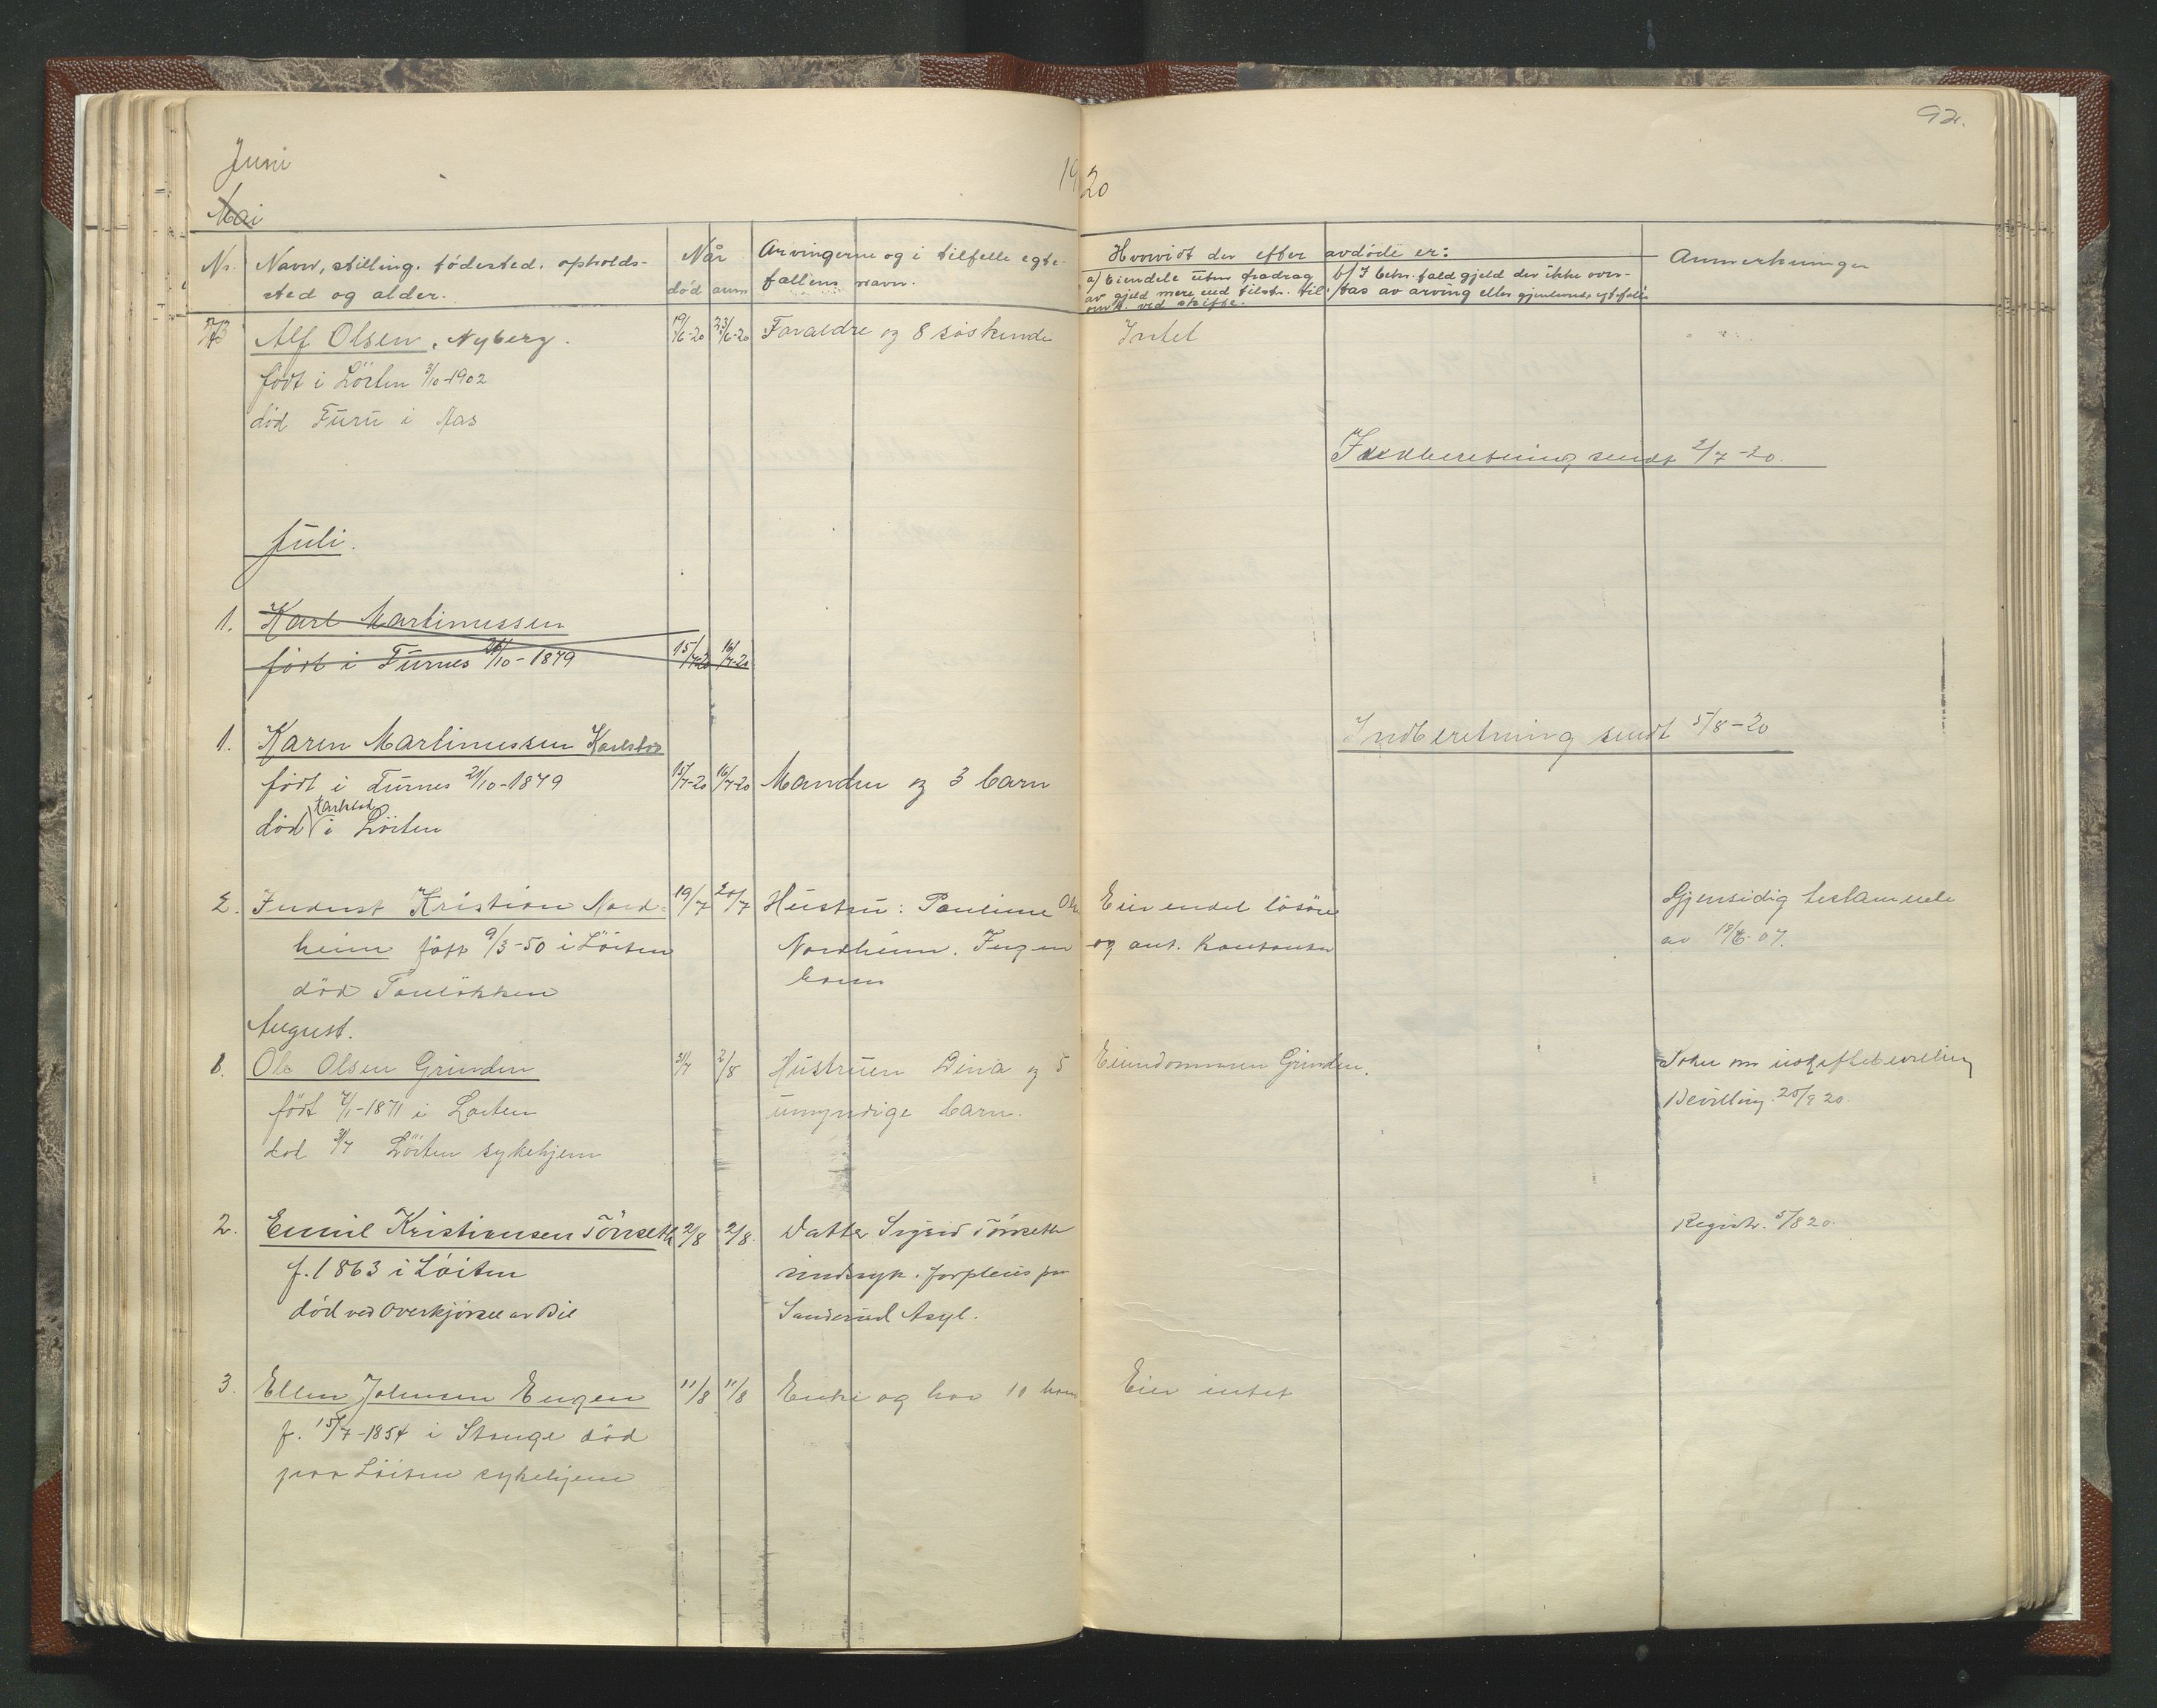 92.
Juni
1920
Mai
Nr. Navn, stilling, fødested, opholds-
sted og alder.
Når
død anm
Arvingerne og i tilfelle egte-
fællens navn.
Hvorvidt der efter avdøde er:
a) Eiendele uten fradrag
av gjeld mere end tilstr. til
omk. ved skifte.
b) I bekr. fald gjeld der ikke over-
tas av arving eller gjenlevende egtefælle
Anmerkninger
Alf Olsen, Nyberg. 19/6-20 23/6-20 Foraeldre og 8 søskende Intet
født i Löiten 3/10-1902
död Furu i Aas
Indberetning sendt 2/7-20.
Juli.
1. Karl Martinussen
født i Furnes 21/10-1879 15/7-20 16/7-20
1. Karen Martinussen Karlstad
Indberetning sendt 5/8-20
født i Furnes 21/10-1879 15/7-20 16/7-20 Manden og 3 barn
död Karlstad i Löiten
2. Kristian Nord- 19/7 20/7 Hustru: Pauline Eier endel lösöre Gjensidig testamente
heim født 9/3-50 i Löiten Nordheim. Ingen og ant. kontanter av 18/6 07.
död barn
August.
1. Ole Olsen Grinden 31/7 2/8 Hustruen Dina og 5 Eiendommen Grinden. Søker om uskiftebevilling
født 2/1-1871 i Løiten umyndige barn. Bevilling 20/9 20.
död 31/7 Löiten sykehjem
2. Emil Kristiansen Tönseth 2/8 2/8 Datter Sigrid Tönseth Registr. 5/8 20.
f. 1863 i Löiten sindssyk. forpleies paa
död ved overkjørsel av Bil Sanderud Asyl.
3. Ellen Johnsen Engen 11/8 11/8 Enke og har 10 barn Eier intet
f. 15/7-1854 i Stange död
paa Löiten sykehjem